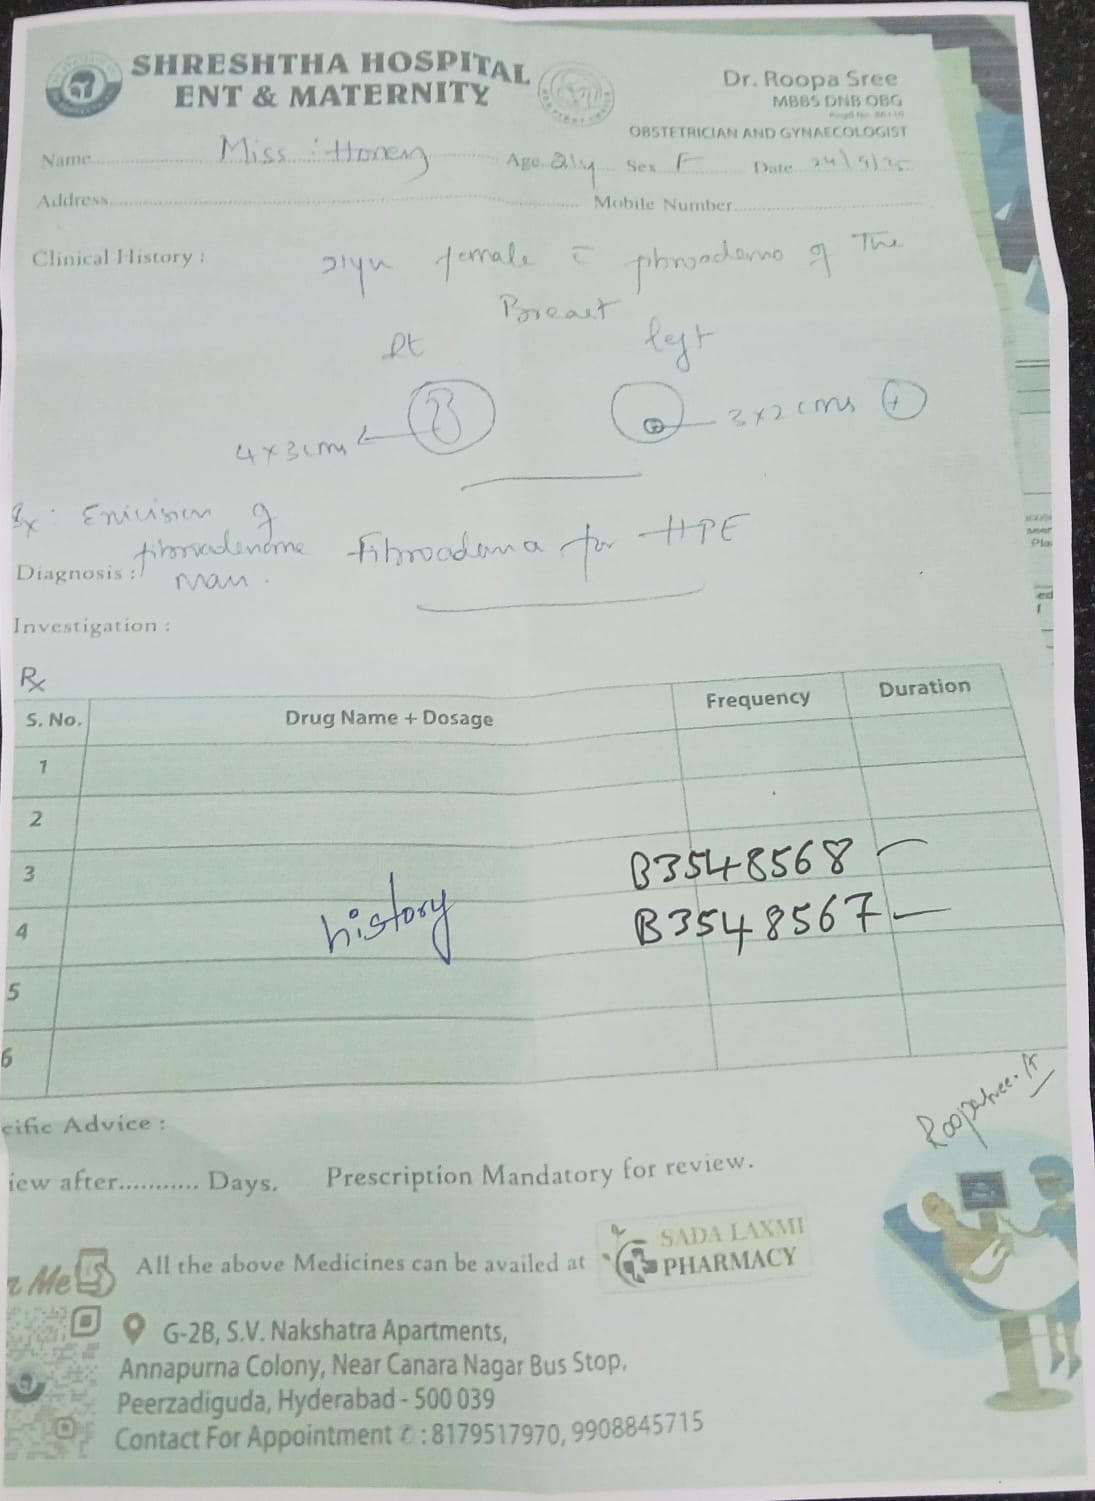 SHRESHTHA HOSPITAL
ENT & MATERNITY
Dr. Roopa Sree
MBBS DNB OBG
OBSTETRICIAN AND GYNAECOLOGIST
Name Miss : Honey Age 21y Sex F Date 24/9/25
Address Mobile Number
Clinical History : 21yr female c̄ of The
Breast
Rt left
4 x 3 cms 3 x 2 cms +
of
Fibroadema for HPE
Diagnosis :
Investigation :
Rx
S. No. Drug Name + Dosage Frequency Duration
1
2
3 B3548568
4 history B3548567
5
6
cific Advice :
iew after........... Days. Prescription Mandatory for review.
All the above Medicines can be availed at SADA LAXMI PHARMACY
Me
G-2B, S.V. Nakshatra Apartments,
Annapurna Colony, Near Canara Nagar Bus Stop,
Peerzadiguda, Hyderabad - 500 039
Contact For Appointment ✆ : 8179517970, 9908845715